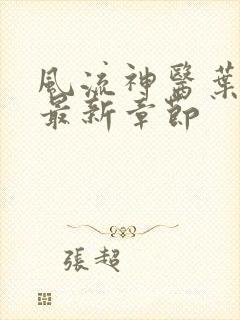 風流神醫葉
最新章節
張超